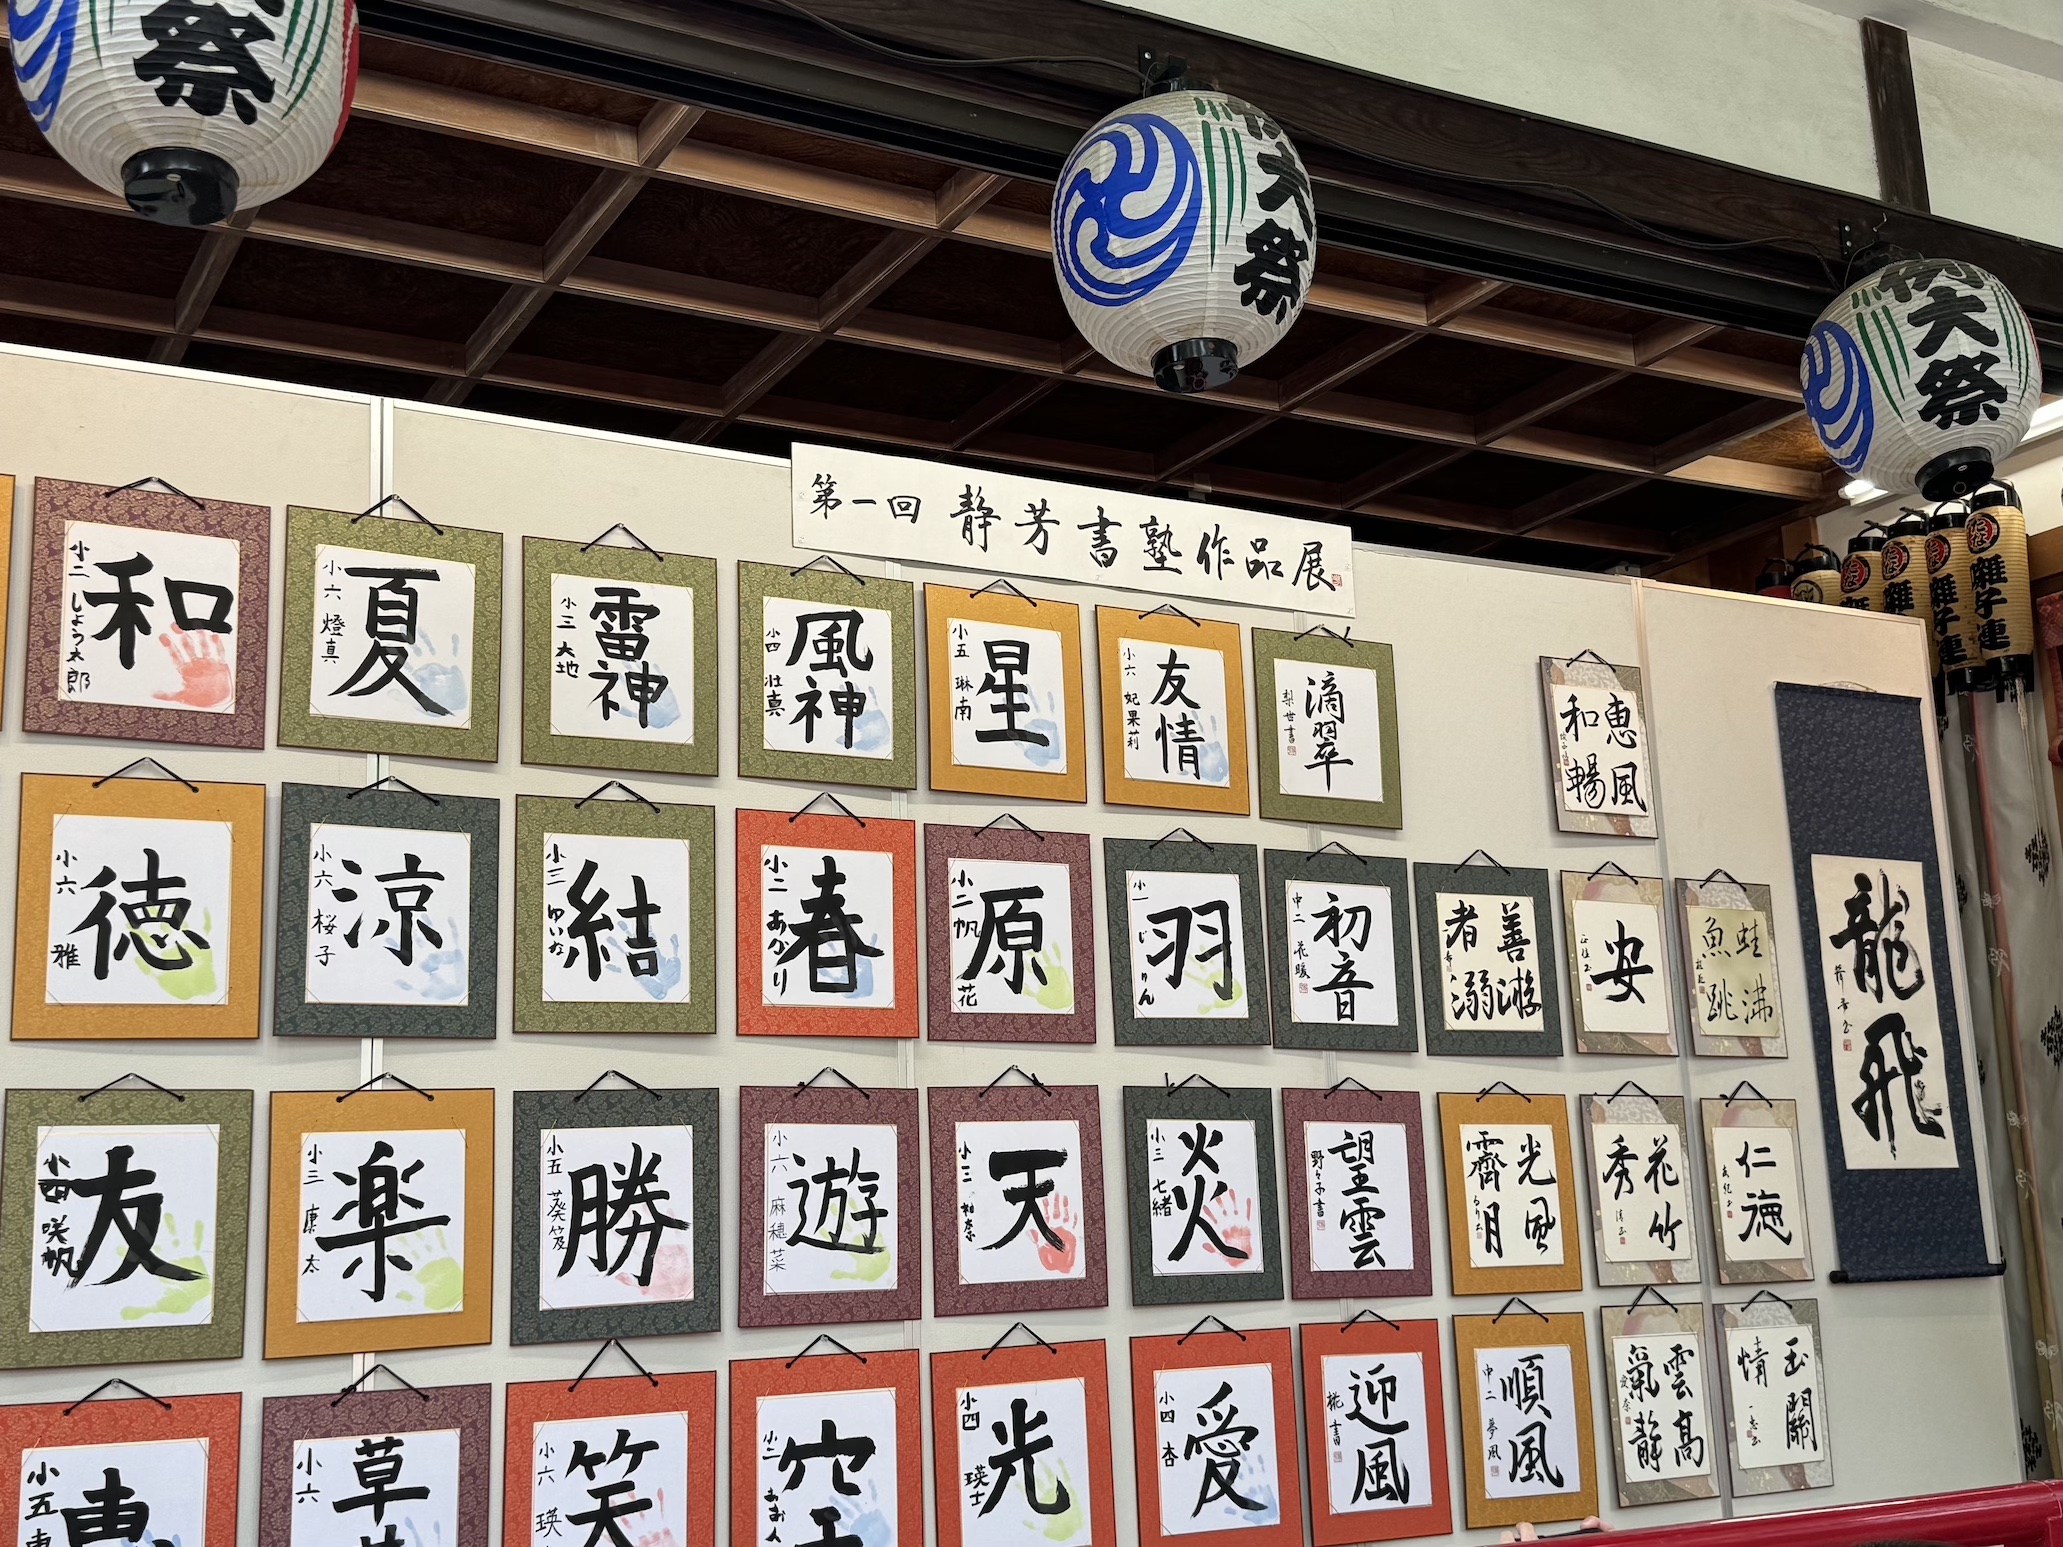 祭
大祭
大祭
第一回 静芳書塾作品展
囃子連
囃子連
和
小二 しょう太郎
夏
小六 燈真
雷神
小三 大地
風神
小四 壮真
星
小五 琳南
友情
小六 妃果莉
滴翠
梨世書
恵風
和暢
徳
小六 雅
涼
小六 桜子
結
小三 ゆいな
春
小二 あかり
原
小二 帆花
羽
小一 じゅん
初音
中二 花暖
善游
者溺
安
蛙沸
魚跳
龍飛
友
小四 咲帆
楽
小三 康太
勝
小五 葵笈
遊
小六 麻穂菜
天
小三 柚奈
炎
小三 七緒
望雲
野々子書
光風
霽月
花竹
秀
仁徳
小五
草
小六
笑
小六 瑛
空
小二 あお人
光
小四 瑛士
愛
小四 杏
迎風
順風
中二 夢風
雲高
氣静
玉關
情